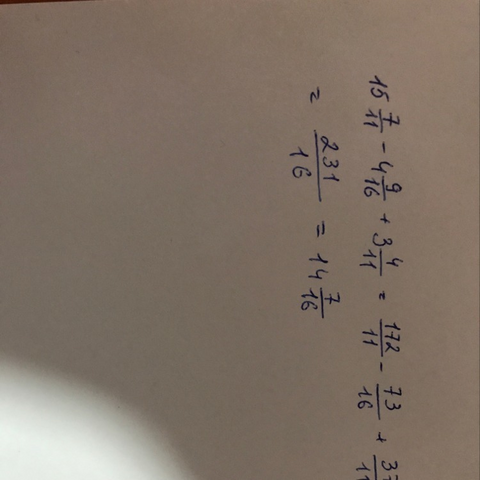 15 7/11 - 4 9/16 + 3 4/11 = 172/11 - 73/16 + 37/11
= 231/16 = 14 7/16